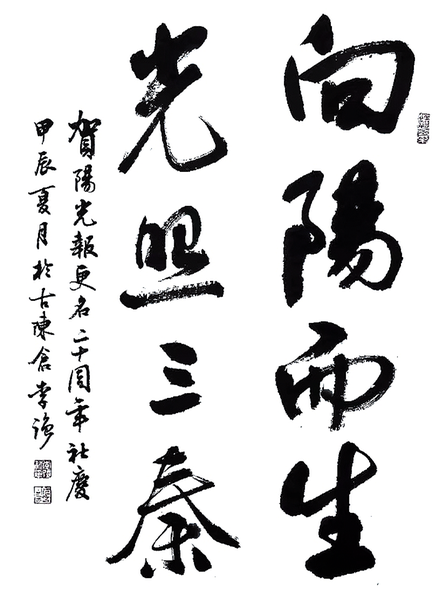 向陽而生
光照三秦
賀陽光報更名二十周年社慶
甲辰夏月於古陳倉李強